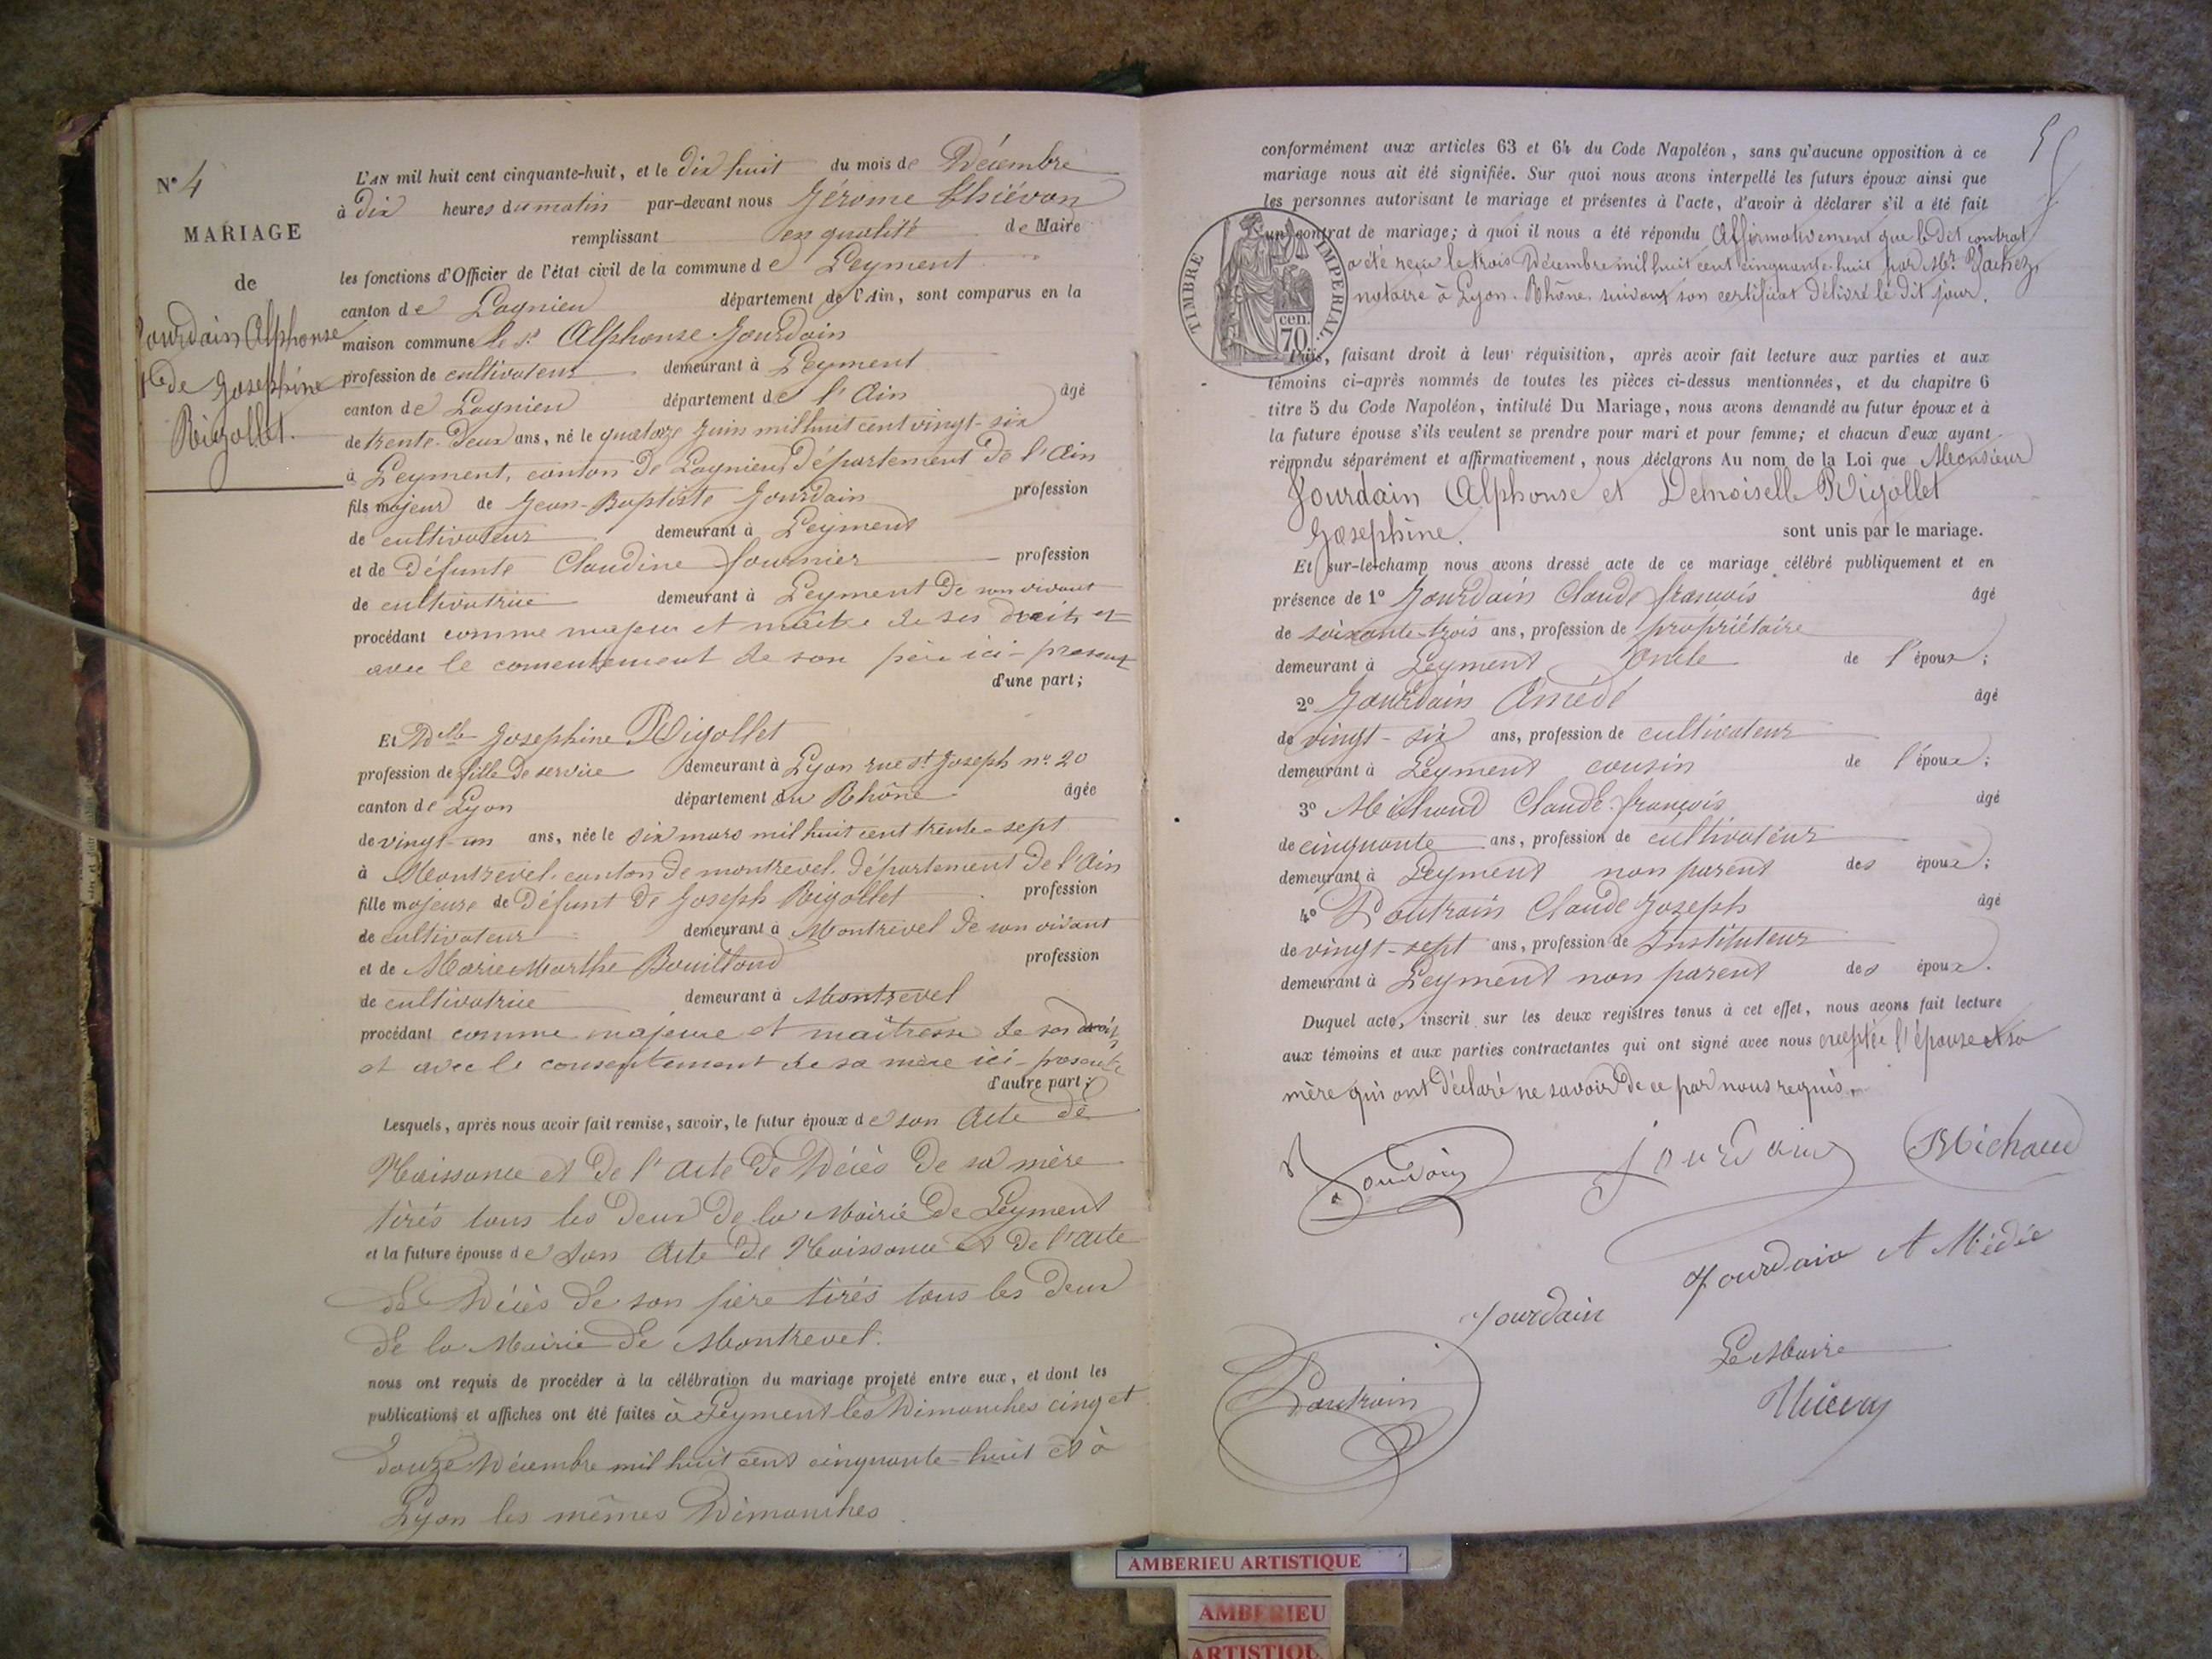 N° 4
MARIAGE
de
Jourdain Alphonse
de Josephine
Rigollet.
L'AN mil huit cent cinquante-huit, et le dix huit du mois de Décembre
à dix heures du matin par-devant nous Jérome Thiévon
remplissant en qualité de Maire
les fonctions d'Officier de l'état civil de la commune de Leyment
canton de Lagnieu département de l'Ain, sont comparus en la
maison commune le Sr Alphonse Jourdain
profession de cultivateur demeurant à Leyment
canton de Lagnieu département de l'Ain âgé
de trente-deux ans, né le quatorze juin mil huit cent vingt-six
à Leyment, canton de Lagnieu, département de l'Ain
fils majeur de Jean-Baptiste Jourdain profession
de cultivateur demeurant à Leyment
et de défunte Claudine fournier profession
de cultivatrice demeurant à Leyment de son vivant
procédant comme majeur et maître de ses droits et
avec le consentement de son père ici-présent
d'une part;
Et Delle Josephine Rigollet
profession de fille de service demeurant à Lyon rue St Joseph n° 20
canton de Lyon département du Rhône âgée
de vingt-un ans, née le six mars mil huit cent trente-sept
à Montrevel, canton de montrevel, département de l'Ain
fille majeure de défunt de Joseph Rigollet profession
de cultivateur demeurant à Montrevel de son vivant
et de Marie Marthe Bouilloud profession
de cultivatrice demeurant à Montrevel
procédant comme majeure et maitresse de ses droits
et avec le consentement de sa mère ici-présente
d'autre part;
Lesquels, après nous avoir fait remise, savoir, le futur époux de son Acte de
Naissance et de l'acte de Décès de sa mère
tirés tous les deux de la Mairie de Leyment
et la future épouse de son Acte de Naissance et de l'acte
de Décès de son père tirés tous les deux
de la Mairie de Montrevel.
nous ont requis de procéder à la célébration du mariage projeté entre eux, et dont les
publications et affiches ont été faites à Leyment les Dimanches cinq et
douze Décembre mil huit cent cinquante-huit et à
Lyon les mêmes Dimanches.
conformément aux articles 63 et 64 du Code Napoléon, sans qu'aucune opposition à ce
mariage nous ait été signifiée. Sur quoi nous avons interpellé les futurs époux ainsi que
les personnes autorisant le mariage et présentes à l'acte, d'avoir à déclarer s'il a été fait
un contrat de mariage; à quoi il nous a été répondu Affirmativement que le dit contrat
a été reçu le trois Décembre mil huit cent cinquante-huit par Mr.
notaire à Lyon. Rhône. suivant son certificat délivré le dit jour.
TIMBRE IMPERIAL.
cen.
70
Puis, faisant droit à leur réquisition, après avoir fait lecture aux parties et aux
témoins ci-après nommés de toutes les pièces ci-dessus mentionnées, et du chapitre 6
titre 5 du Code Napoléon, intitulé Du Mariage, nous avons demandé au futur époux et à
la future épouse s'ils veulent se prendre pour mari et pour femme; et chacun d'eux ayant
répondu séparément et affirmativement, nous déclarons Au nom de la Loi que Monsieur
Jourdain Alphonse et Demoiselle Rigollet
Josephine. sont unis par le mariage.
Et sur-le-champ nous avons dressé acte de ce mariage célébré publiquement et en
présence de 1° Jourdain Claude françois âgé
de soixante-trois ans, profession de propriétaire
demeurant à Leyment Oncle de l'époux;
2° Jourdain Amédé âgé
de vingt-six ans, profession de cultivateur
demeurant à Leyment cousin de l'époux;
3° Michaud Claude-françois âgé
de cinquante ans, profession de cultivateur
demeurant à Leyment non parent des époux;
4° Poutrain Claude Joseph âgé
de vingt-sept ans, profession de Instituteur
demeurant à Leyment non parent des époux.
Duquel acte, inscrit sur les deux registres tenus à cet effet, nous avons fait lecture
aux témoins et aux parties contractantes qui ont signé avec nous exceptée l'épouse et sa
mère qui ont déclaré ne savoir de ce par nous requis.
Jourdain jourdain Michaud
Jourdain AMédée
Jourdain
Le Maire
Poutrain
Thiévon
AMBERIEU ARTISTIQUE
AMBERIEU
ARTISTIQU